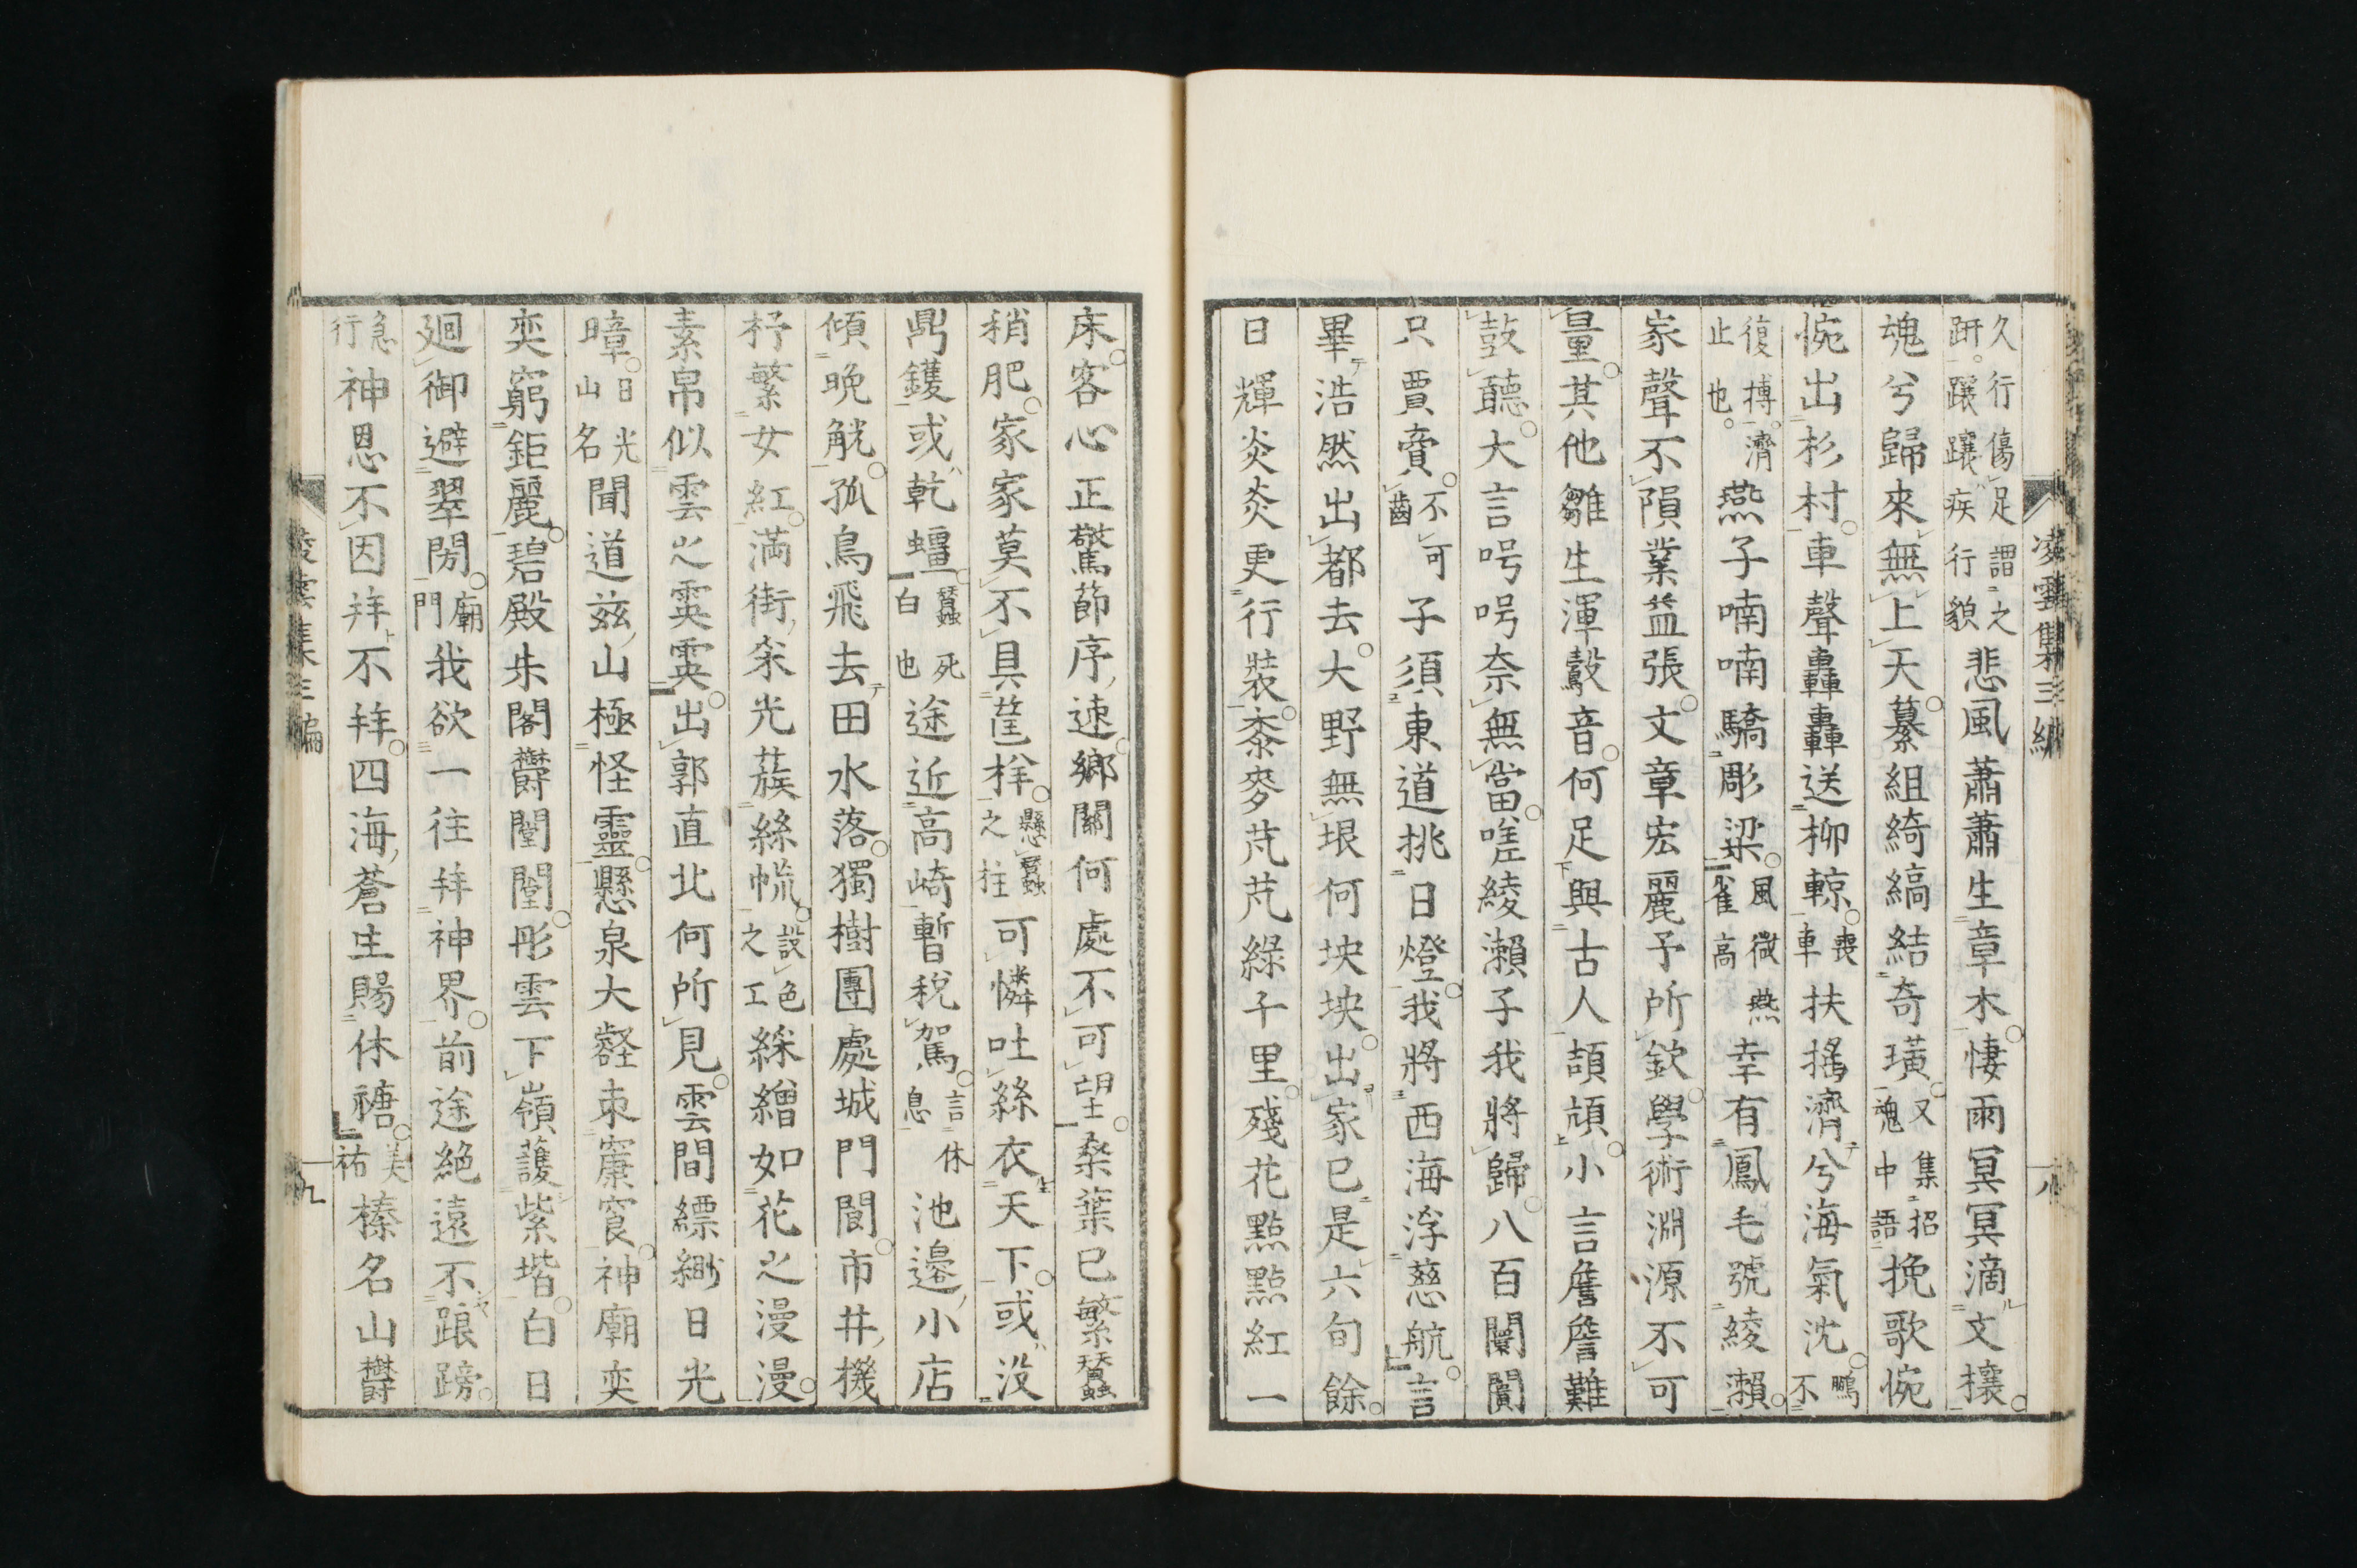 凌雲集三編
八
久行傷足謂之趼躟躟疾行貌悲風蕭蕭生章木悽雨冥冥滴文攘
魂兮歸來無上天纂組綺縞結奇璜又集招魂中語挽歌惋
惋出杉村車聲轟轟送柳輬喪車扶搖濟兮海氣沈鵬不
復搏濟止也燕子喃喃驕彫梁風微燕雀高幸有鳳毛號綾瀨
家聲不隕業益張文章宏麗予所欽學術淵源不可
量其他雛生渾鷇音何足與古人頡頏小言詹詹難
鼓聽大言呺呺奈無當嗟綾瀨子我將歸八百闤闠
只賈賣不可齒子須東道挑日燈我將西海浮慈航言
畢浩然出都去大野無垠何坱坱出家已是六旬餘
日輝炎炎更行裝黍麥芃芃綠千里殘花點點紅一
床客心正驚節序速鄉關何處不可望桑葉已繁蠶
稍肥家家莫不具筐栚懸蠶之柱可憐吐絲衣天下或沒
鼎鑊或乾殭蠶死白也途近高崎暫稅駕言休息池邊小店
傾晚觥孤鳥飛去田水落獨樹團處城門閬市井機
杼繁女紅滿街籴光蔟絲㡃設色之工綵繒如花之漫漫
素帛似雲之霙霙出郭直北何所見雲間縹緲日光
暲日光山名聞道茲山極怪靈懸泉大壑束窻㝗神廟奕
奕窮鉅麗碧殿朱閣欝閶閶彤雲下嶺護紫堦白日
廻御避翠閍廟門我欲一往拜神界前途絕遠不踉蹡
急行神恩不因拜不拜四海蒼生賜休禟美祜榛名山欝
凌雲集三編
九